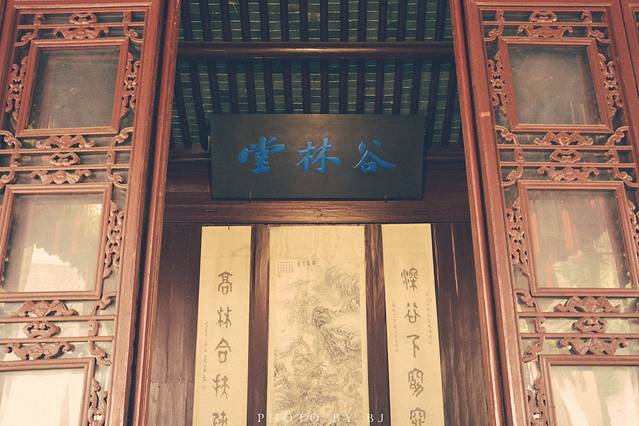 谷林堂
深谷下窈窕
高林合扶疏
PHOTO BY BJ